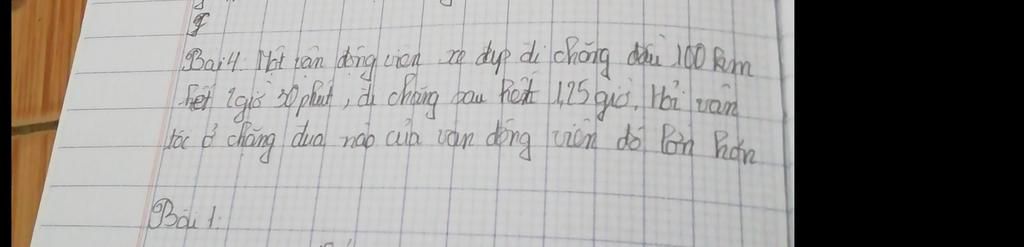 Bài 4: Một vận động viên xe đạp đi chặng đầu 100 km
hết 2 giờ 30 phút, đi chặng sau hết 1,25 giờ, Hỏi vận
tốc ở chặng đua nào của vận động viên đó lớn hơn
Bài 1: